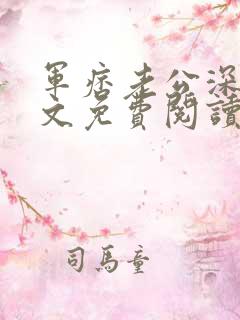 軍痞老公深
文免費閱讀
司馬童